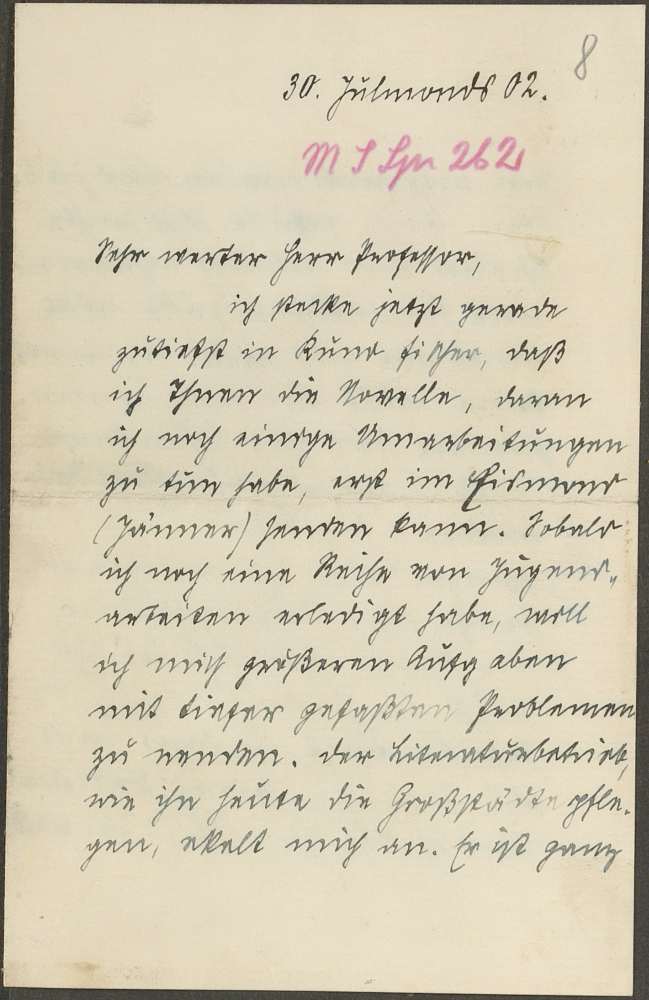 8
30. Julmonds 02.
M S Spr 262
Sehr werter Herr Professor,
ich stecke jetzt gerade
zutiefst in Kuno Fischer, daß
ich Ihnen die Novelle, daran
ich noch einige Umarbeitungen
zu tun habe, erst im Eismond
(Jänner) senden kann. Sobald
ich noch eine Reihe von Jugend-
arbeiten erledigt habe, will
ich mich größeren Aufgaben
mit tiefer gefaßten Problemen
zu wenden. Der Literaturbetrieb,
wie ihn heute die Großstädte pfle-
gen, ekelt mich an. Er ist ganz